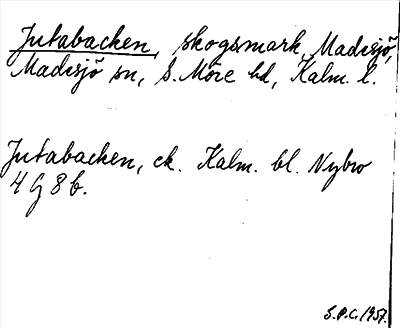 Jutabacken, skogsmark, Madesjö,
Madesjö sn, S. Möre hd, Kalm. l.
Jutabacken, ek. Kalm. bl. Nybro
4 G 8 b.
S.P.C. 1957.